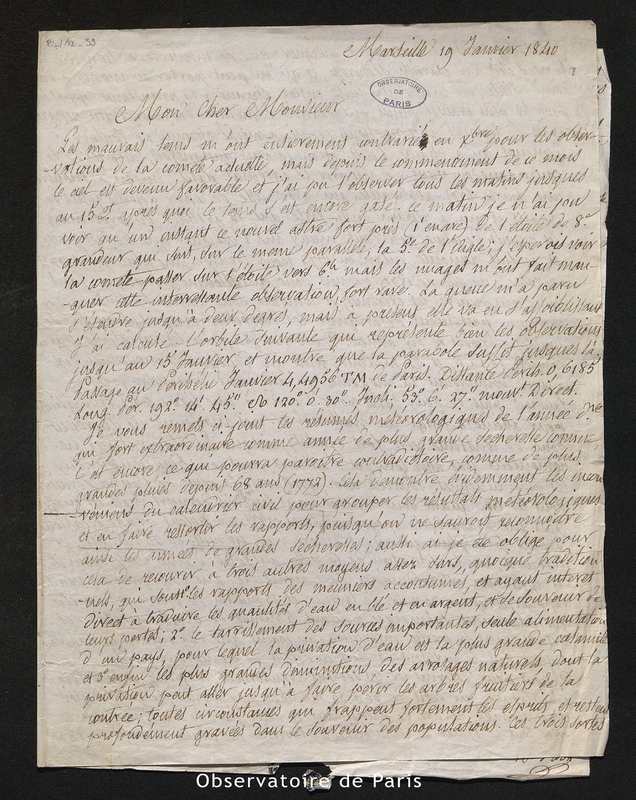 Marseille 19 Janvier 1840
OBSERVATOIRE
DE
PARIS
Mon Cher Monsieur
Les mauvais tems m'ont entierement contrarié en Xbre pour les obser-
vations de la comete actuelle, mais depuis le commencement de ce mois
le ciel est devenu favorable et j'ai pu l'observer tous les matins jusques
au 15 et après quoi le tems s'est encore gaté. ce matin je n'ai pu
voir qu'un instant ce nouvel astre fort près de l'étoile de 8e
grandeur qui suit, sur le meme parallele, la 5e de l'aigle; j'esperois voir
la comete passer sur l'étoile vers 6h mais les nuages m'ont fait man-
quer cette interressante observation, fort rare. La queue m'a paru
s'etendre jusqu'à deux degrés, mais à présent elle va en s'affoiblissant
J'ai calculé l'orbite suivante qui représente bien les observations
jusqu'au 15 Janvier et montre que la parabole suffit jusques là
Passage au Perihelie Janvier 4,4956 TM de Paris. Distance Perih. 0,6185
Long. Per. 192° 14' 45" ☊ 120° 0' 30" Incli. 53° 6' 27" mouvt Direct.
Je vous remets ci joint les résumés météorologiques de l'année dre
qui fort extraordinaire comme année de plus grande sécheresse comme
c'est encore ce que pourra paroitre contradictoire, comme de plus
grandes pluies depuis 68 ans (1772). Cela démontre évidemment les incon-
veniens du calendrier civil pour grouper les résultats météorologiques
et en faire ressortir les rapports, puisqu'on ne sauroit reconnoitre
ainsi les années de grandes sécheresses; aussi ai je été obligé pour
cela de recourir à trois autres moyens assez surs, quoique tradition
nels, qui sont les rapports des meuniers accoutumés, et ayant interet
direct à traduire les quantités d'eau en blé et en argent, et de souvenir de
leurs pertes; 2° le tarissement des sources importantes, seule alimentation
d'un pays, pour lequel la privation d'eau est la plus grande calamité
et 3° enfin les plus grandes diminutions des arrosages naturels, dont la
privation peut aller jusqu'à faire périr les arbres fruitiers de la
contrée; toutes circonstances qui frappent fortement les esprits et restent
profondement gravées dans le souvenir des populations. Ces trois sortes
Observatoire de Paris